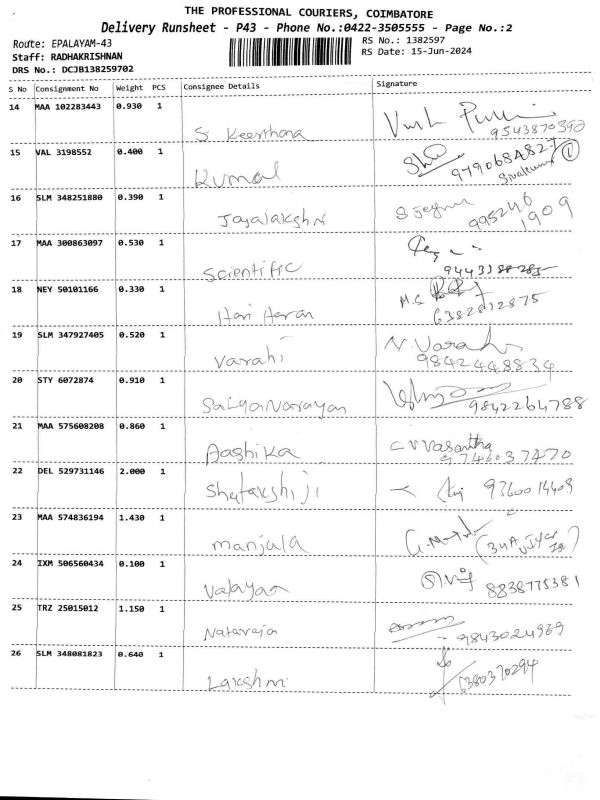 THE PROFESSIONAL COURIERS, COIMBATORE
Delivery Runsheet - P43 - Phone No.:0422-3505555 - Page No.:2
Route: EPALAYAM-43
RS No.: 1382597
Staff: RADHAKRISHNAN
RS Date: 15-Jun-2024
DRS No.: DCJB138259702
S No Consignment No Weight PCS Consignee Details Signature
14 MAA 102283443 0.930 1
S Keerthana 9543870390
15 VAL 3198552 0.400 1
Kumal 9790684827
Sivakumar
16 SLM 348251880 0.390 1
Jayalakshmi
995246
1909
17 MAA 300863097 0.530 1
Scientific
18 NEY 50101166 0.330 1
Hari Haran 6382812875
19 SLM 347927405 0.520 1
Varahi N. Varahi
9842448834
20 STY 6072874 0.910 1
Satya Narayan 9842264788
21 MAA 575608208 0.860 1
Aashika C V Vasantha
9746037470
22 DEL 529731146 2.000 1
Shatakshi ji 9360014409
23 MAA 574836194 1.430 1
manjala
24 IXM 506560434 0.100 1
Valayan 8838775381
25 TRZ 25015012 1.150 1
Nataraja 9843024939
26 SLM 348081823 0.640 1
Lakshmi 6380370294